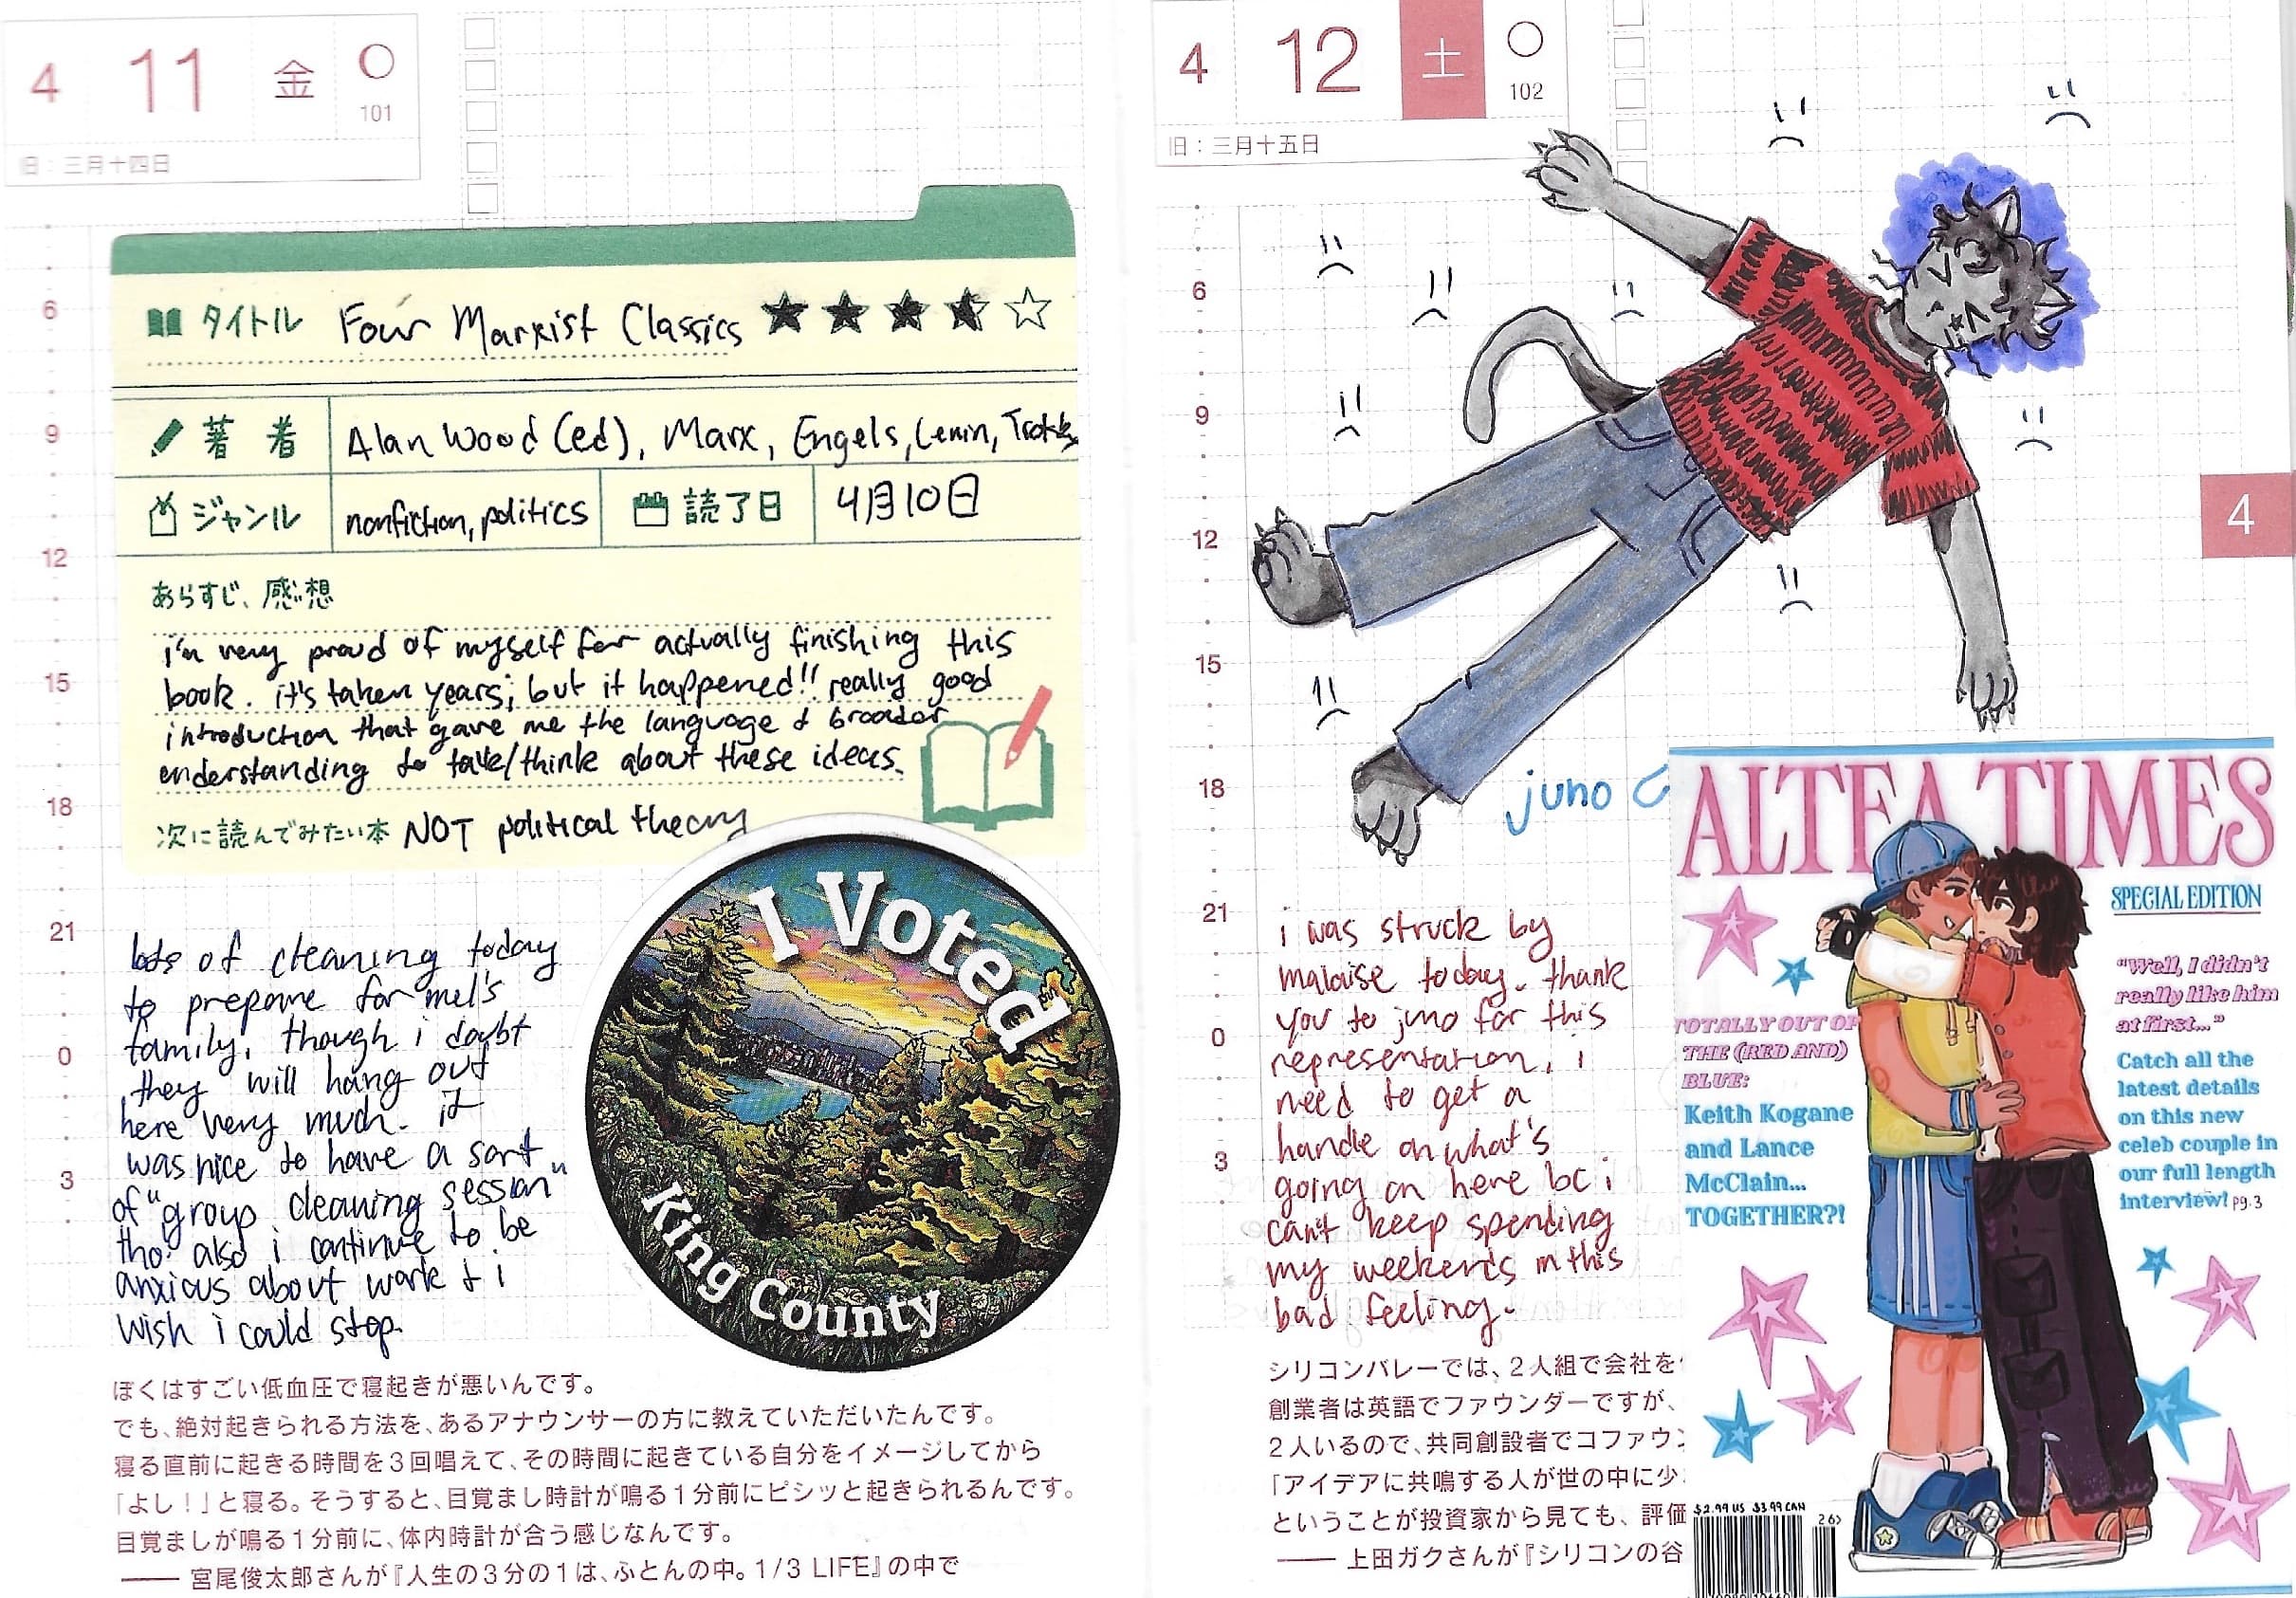 4 11 金 101
旧：三月十四日
6
9
12
15
18
21
0
3
タイトル Four Marxist Classics
著者 Alan Wood (ed), Marx, Engels, Lenin, Trotsky
ジャンル nonfiction, politics 読了日 4月10日
あらすじ、感想
i'm very proud of myself for actually finishing this
book. it's taken years; but it happened!! really good
introduction that gave me the language & broader
understanding to talk/think about these ideas.
次に読んでみたい本 NOT political theory
I Voted
King County
lots of cleaning today
to prepare for mel's
family, though i doubt
they will hang out
here very much. it
was nice to have a sort
of "group cleaning session"
tho. also i continue to be
anxious about work & i
wish i could stop.
ぼくはすごい低血圧で寝起きが悪いんです。
でも、絶対起きられる方法を、あるアナウンサーの方に教えていただいたんです。
寝る直前に起きる時間を3回唱えて、その時間に起きている自分をイメージしてから
「よし！」と寝る。そうすると、目覚まし時計が鳴る1分前にピシッと起きられるんです。
目覚ましが鳴る1分前に、体内時計が合う感じなんです。
―― 宮尾俊太郎さんが『人生の3分の1は、ふとんの中。1/3 LIFE』の中で
4 12 土 102
旧：三月十五日
6
9
12
15
18
21
0
3
4
juno
i was struck by
malaise today. thank
you to juno for this
representation. i
need to get a
handle on what's
going on here bc i
can't keep spending
my weekends in this
bad feeling.
ALTEA TIMES
SPECIAL EDITION
"Well, I didn't
really like him
at first..."
Catch all the
latest details
on this new
celeb couple in
our full length
interview! pg.3
TOTALLY OUT OF
THE (RED AND)
BLUE:
Keith Kogane
and Lance
McClain...
TOGETHER?!
$2.99 US $3.99 CAN
26>
シリコンバレーでは、2人組で会社を
創業者は英語でファウンダーですが、
2人いるので、共同創設者でコファウン
「アイデアに共鳴する人が世の中に少
ということが投資家から見ても、評価
―― 上田ガクさんが『シリコンの谷